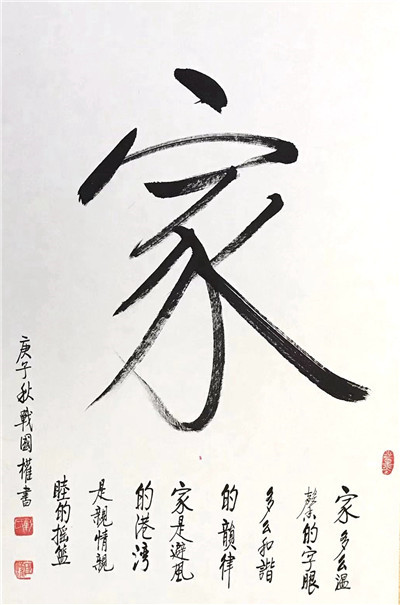 家
家多么温
馨的字眼
多么和諧
的韻律
家是避風
的港湾
是親情親
睦的摇篮
庚子秋戰國權書